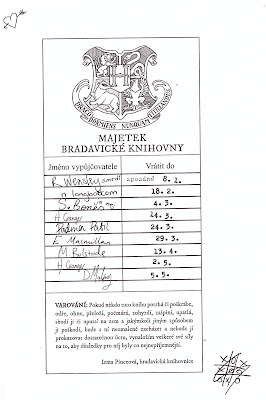 DRACO DORMIENS NUNQUAM TITILLANDUS
MAJETEK
BRADAVICKÉ KNIHOVNY
Jméno vypůjčovatele Vrátit do
R. Weasley smrdí zpožděné 8. 2.
n longbottom 18. 2.
S. Bones 4. 3.
H Granger 14. 3.
Padma Patil 24. 3.
E. Macmillan 29. 3.
M Bulstrode 13. 4.
H Granger 2. 5.
D Malfoy 5. 5.
VAROVÁNÍ: Pokud někdo tuto knihu potrhá či poškrábe,
odře, ohne, přeloží, počmárá, zohyzdí, zašpiní, upatlá,
shodí ji či upustí na zem a jakýmkoli jiným způsobem
ji poškodí, bude s ní neomaleně zacházet a nebude jí
prokazovat dostatečnou úctu, vynaložím veškeré své síly
na to, aby důsledky pro něj byly co nejnepříjemnější.
Irma Pinceová, bradavická knihovnice